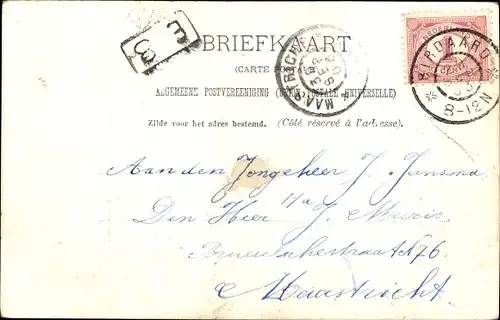 BRIEFKAART
(CARTE POSTALE)
ALGEMEENE POSTVEREENIGING (UNION POSTALE UNIVERSELLE)
Zijde voor het adres bestemd. (Côté réservé à l'adresse).
BIRDAARD
8-12N
MAASTRICHT
Aan den Jongeheer J. Junsma
Den Heer J. Muris
N 76
Maastricht